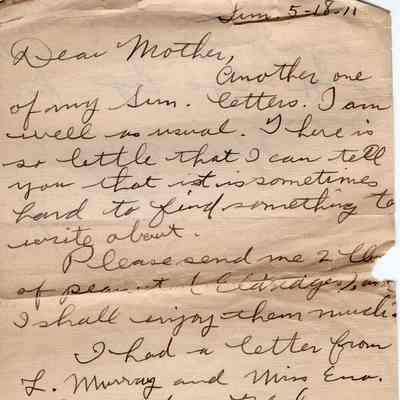 Sun. 5-18-11
Dear Mother,
Another one
of my Sun. letters. I am
well as usual. There is
so little that I can tell
you that it is sometimes
hard to find something to
write about.
Please send me 2 lb
of (Eldridges),
I shall enjoy them much.
I had a letter from
L. Murray and Miss